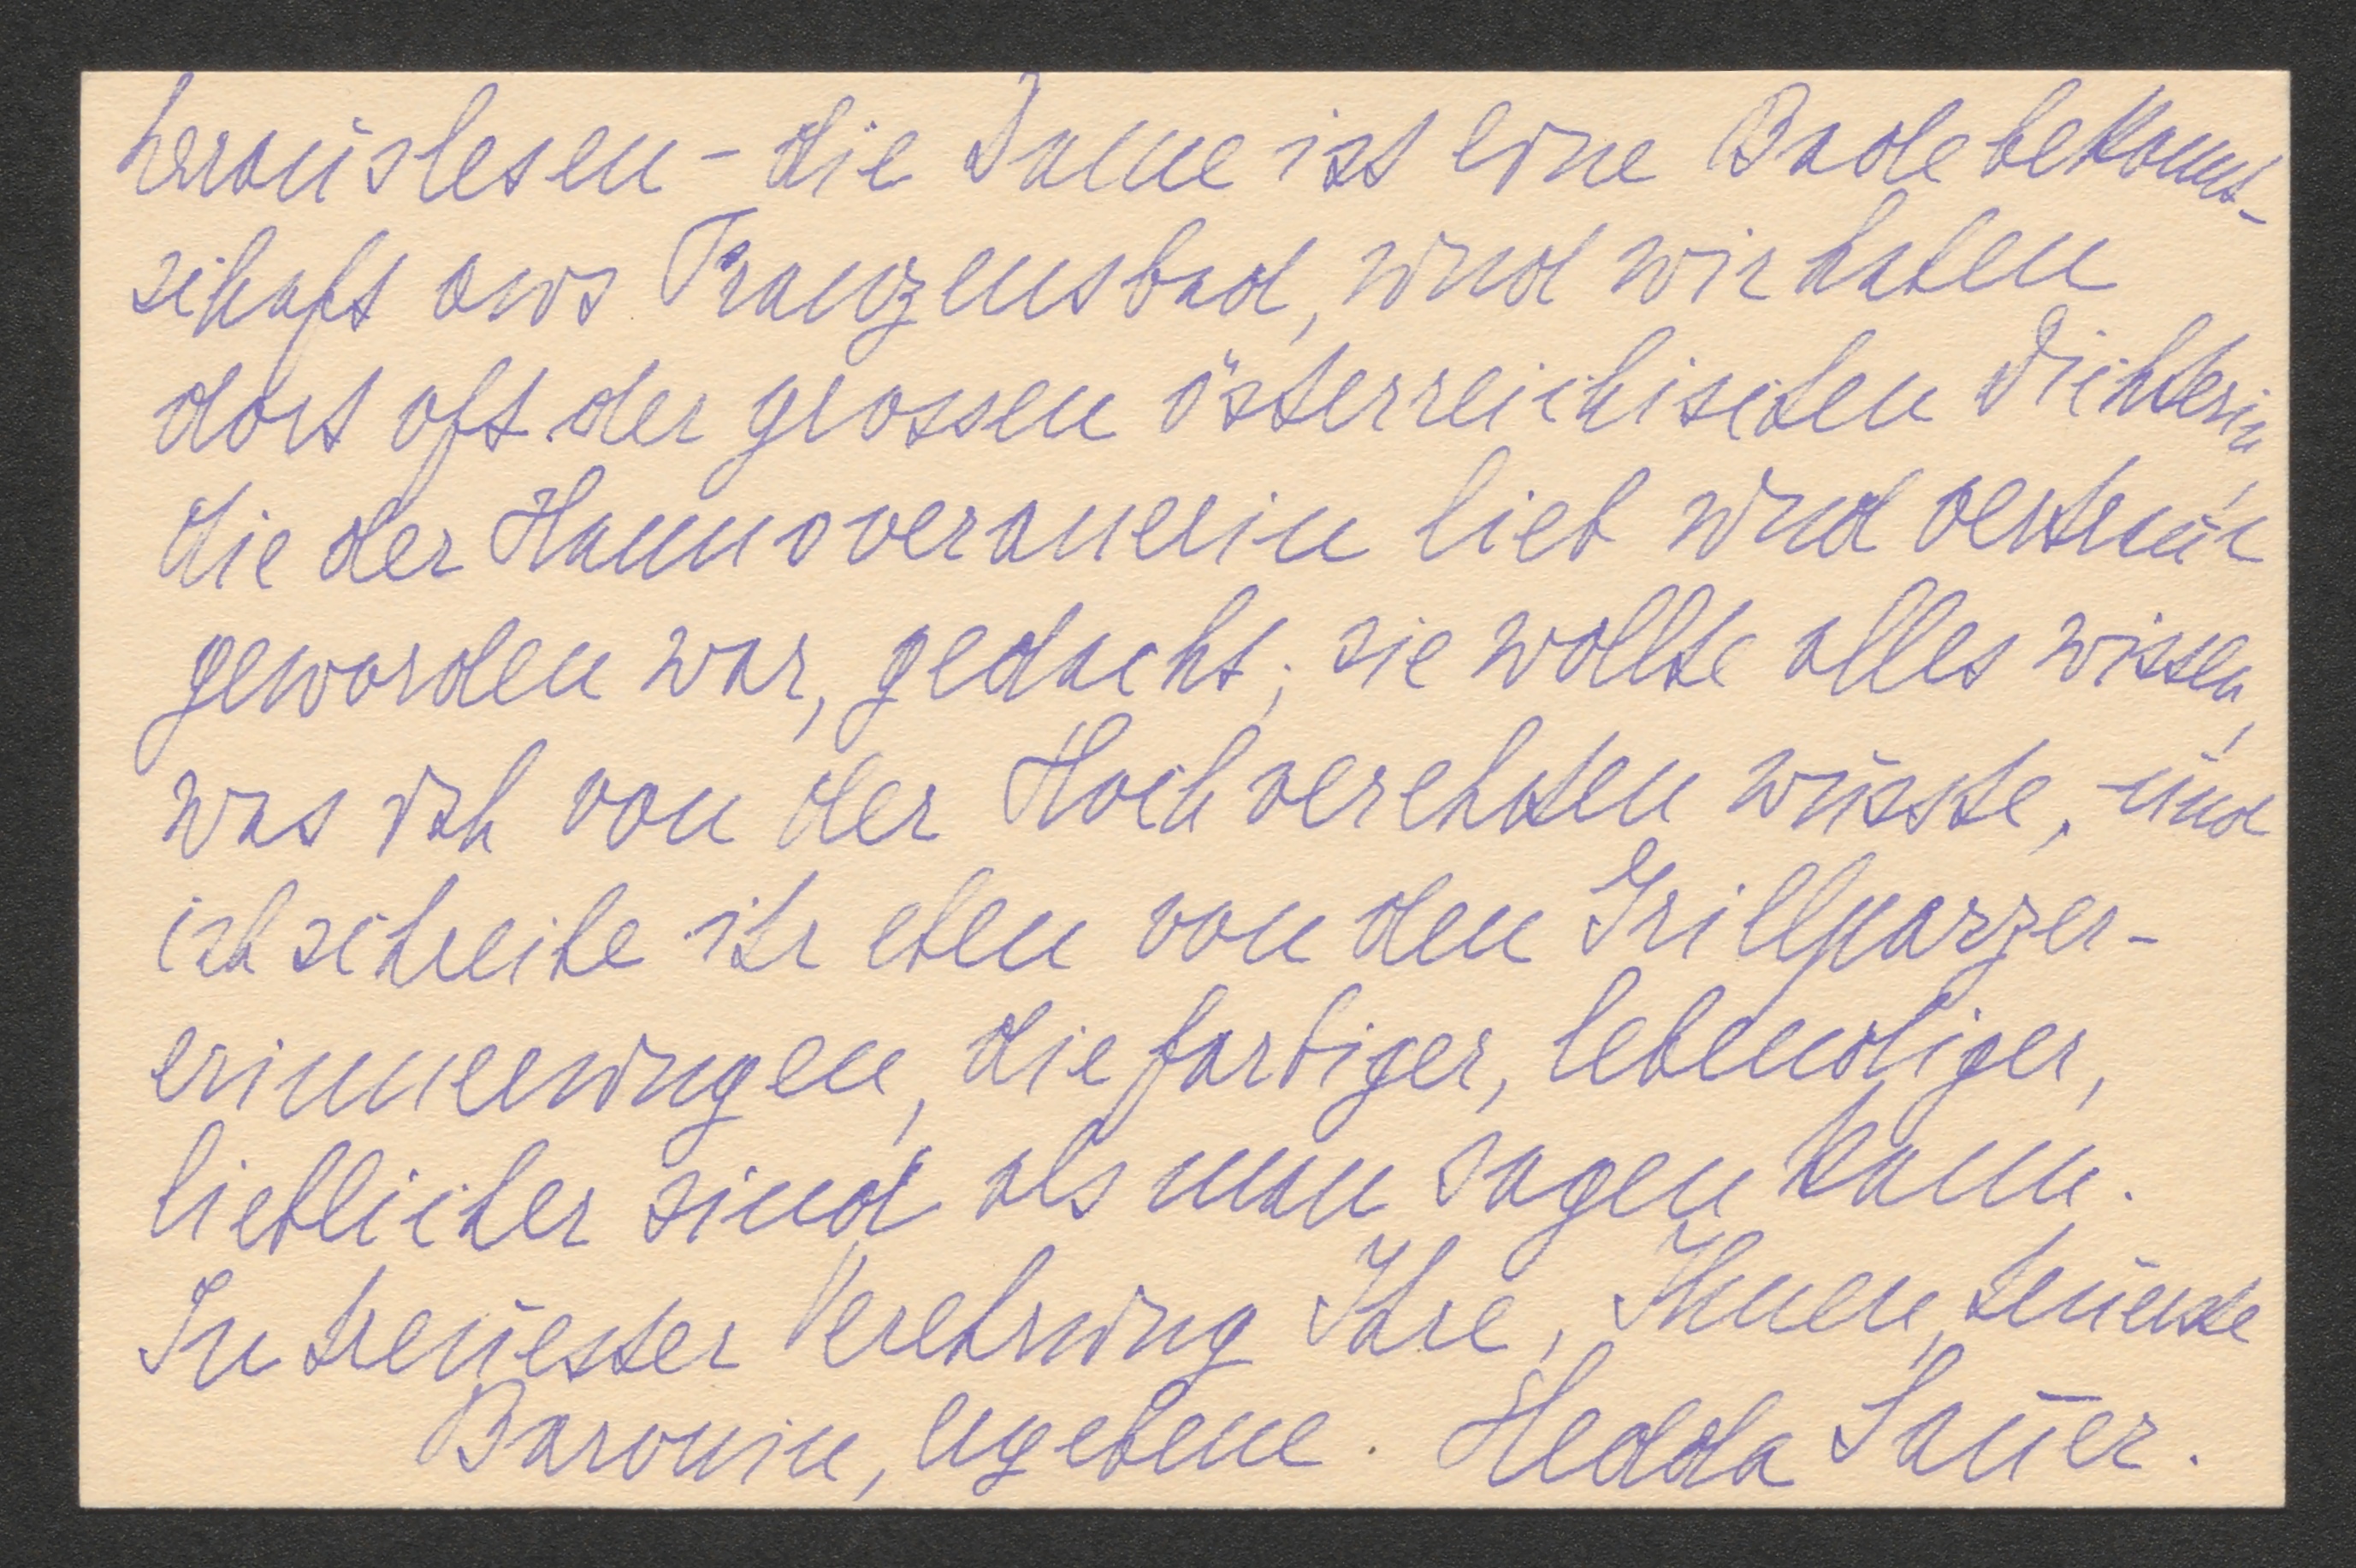 herauslesen – die Dame ist eine Badebekannt-
schaft aus Franzensbad, und wir haben
dort oft der grossen österreichischen Dichterin,
die der Hannoveranerin lieb und vertraut
geworden war, gedacht; sie wollte alles wissen,
was ich von der Hochverehrten wüsste, – und
ich schreibe ihr eben von den Grillparzer-
erinnerungen, die farbiger, lebendiger,
lieblicher sind als man sagen kann.
In treuester Verehrung Ihre, Ihnen, teuerste
Baronin, ergebene. Hedda Sauer.